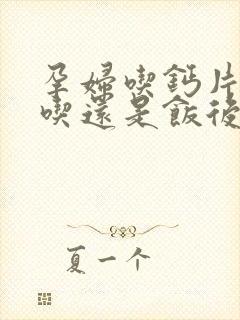 孕婦喫鈣片
喫還是飯後
夏一个